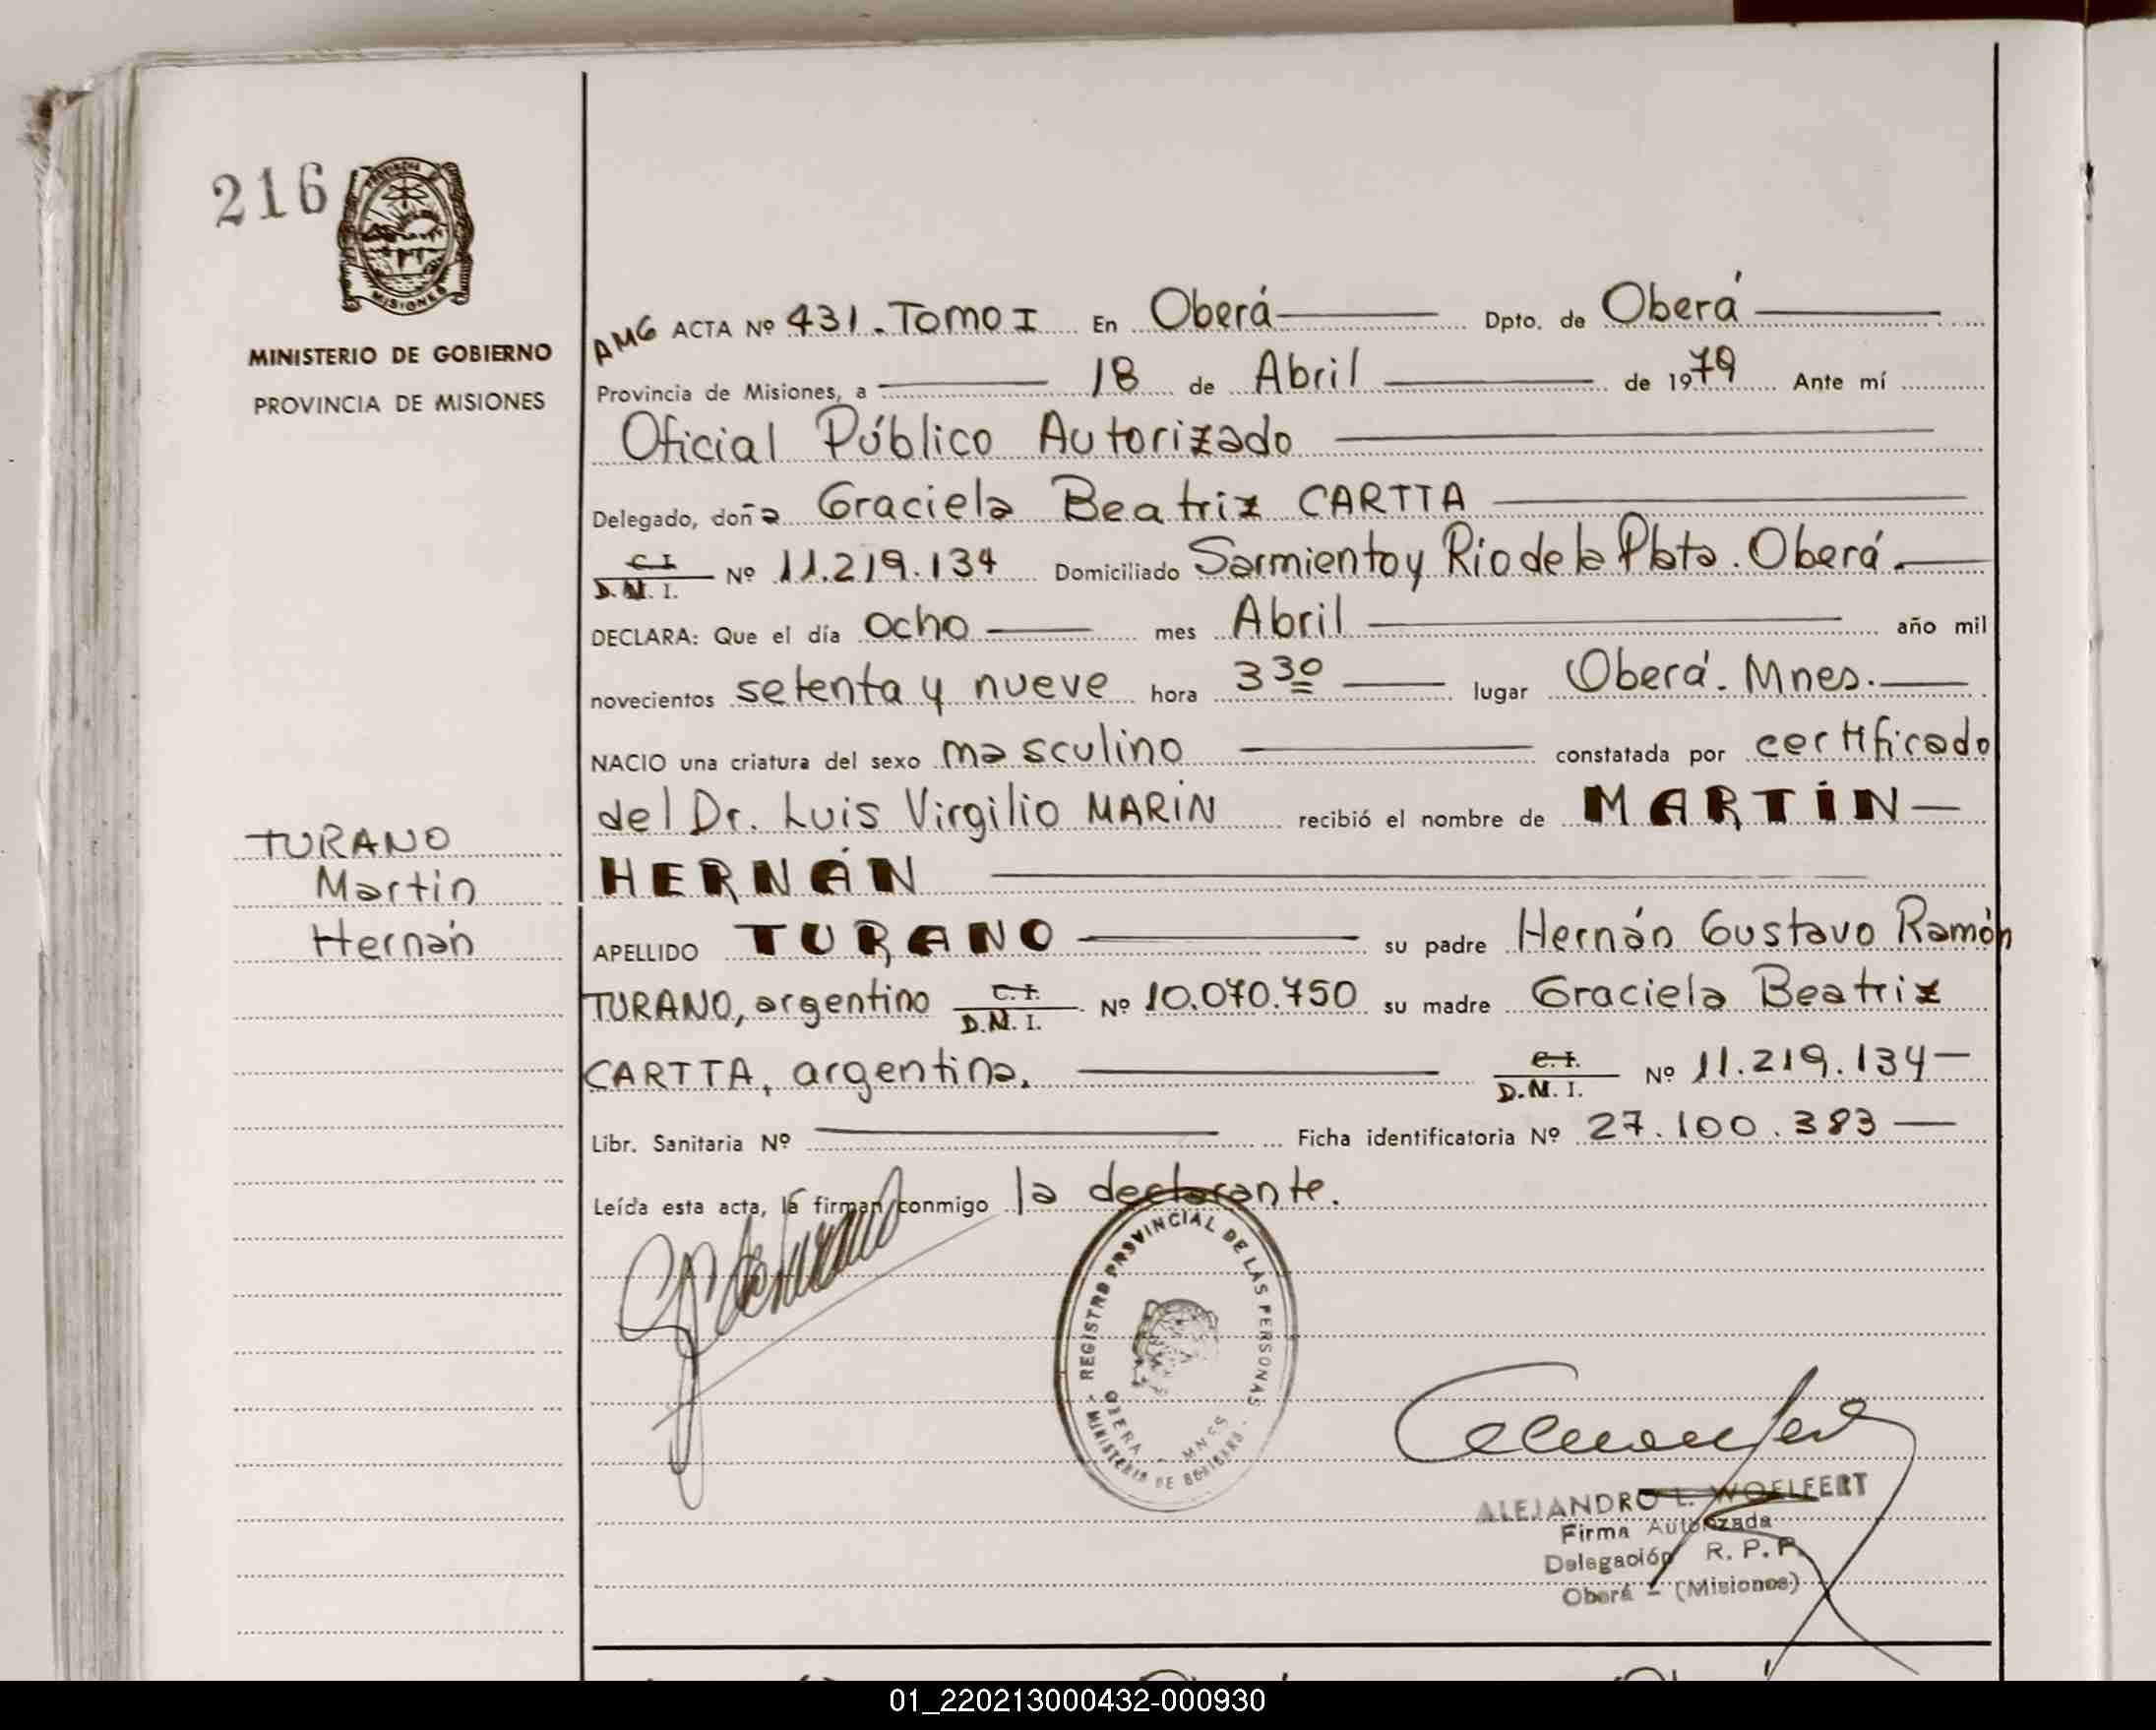 216
PROVINCIA
MISIONES
MINISTERIO DE GOBIERNO
PROVINCIA DE MISIONES
TURANO
Martín
Hernán
AMG ACTA Nº 431. Tomo I En Oberá Dpto. de Oberá
Provincia de Misiones, a 18 de Abril de 1979 Ante mí
Oficial Público Autorizado
Delegado, doña Graciela Beatriz CARTTA
C.I. D.N.I. Nº 11.219.134 Domiciliado Sarmiento y Río de la Plata. Oberá.
DECLARA: Que el día ocho mes Abril año mil
novecientos setenta y nueve hora 3 30 lugar Oberá. Mnes.
NACIO una criatura del sexo masculino constatada por certificado
del Dr. Luis Virgilio MARÍN recibió el nombre de MARTÍN
HERNÁN
APELLIDO TURANO su padre Hernán Gustavo Ramón
TURANO, argentino C.I. D.N.I. Nº 10.070.750 su madre Graciela Beatriz
CARTTA, argentina. C.I. D.N.I. Nº 11.219.134
Libr. Sanitaria Nº Ficha identificatoria Nº 27.100.383
Leída esta acta, la firman conmigo la declarante.
REGISTRO PROVINCIAL DE LAS PERSONAS
OBERA - MNES
MINISTERIO DE GOBIERNO
ALEJANDRO L. WOELFERT
Firma Autorizada
Delegación R. P. P.
Oberá - (Misiones)
01_220213000432-000930